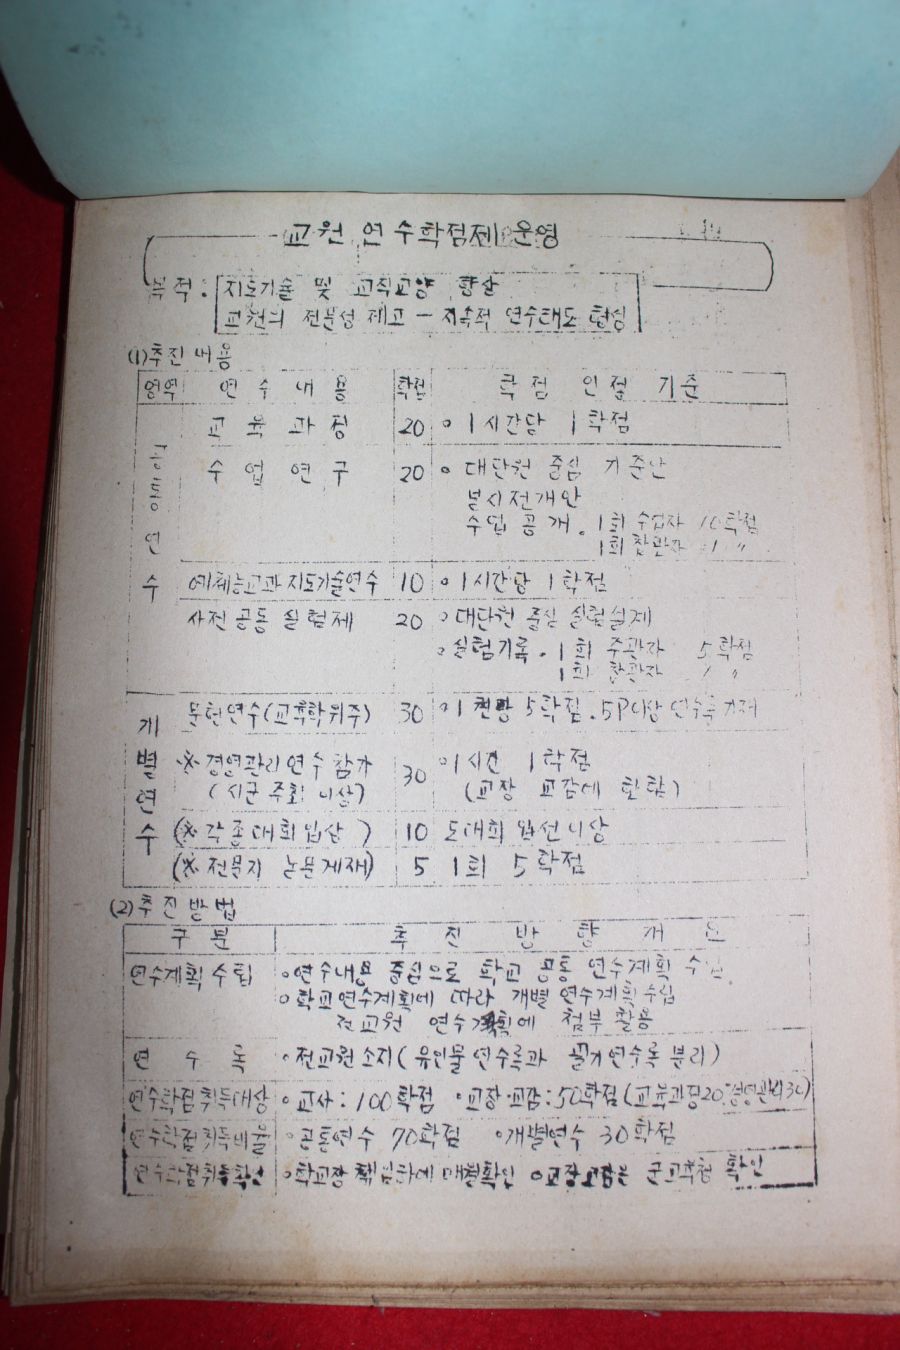 교원 연수학점제 운영
목적: 지도기술 및 교직교양 향상
교원의 전문성 제고 - 지속적 연수태도 형성
(1)추진내용
영역 연수내용 학점 학점 인정 기준
공통연수
교육과정 20 ○1시간당 1학점
수업연구 20 ○대단원 중심 기준안
전개안
수업공개 . 1회 수업자 10학점
1회 참관자 1 〃
예체능교과지도기술연수 10 ○1시간당 1학점
사전공동실험제 20 ○대단원 중심 실험설계
○실험기록 . 1회 주관자 5학점
1회 참관자 1 〃
개별연수
문헌연수(교육학위주) 30 ○1권당 5학점 . 5P이상 연수록기재
※경영관리연수참가 30 ○1시간 1학점
(시군 주최 이상) (교장 교감에 한함)
(※각종대회입상) 10 도대회 입선이상
(※전문지 논문게재) 5 1회 5학점
(2)추진방법
구분 추진방향개요
연수계획수립 ○연수내용 중심으로 학교 공통 연수계획 수립
○학교연수계획에 따라 개별 연수계획수립
전교원 연수계획에 첨부 활용
연수록 ○전교원소지(유인물연수록과 필기연수록 분리)
연수학점취득대상 ○교사:100학점 ○교장·교감:50학점(교육과정20,경영관리30)
연수학점취득비율 ○공통연수 70학점 ○개별연수 30학점
연수학점취득확인 ○학교장 책임하에 매월확인 ○교장교감는 군교육청 확인